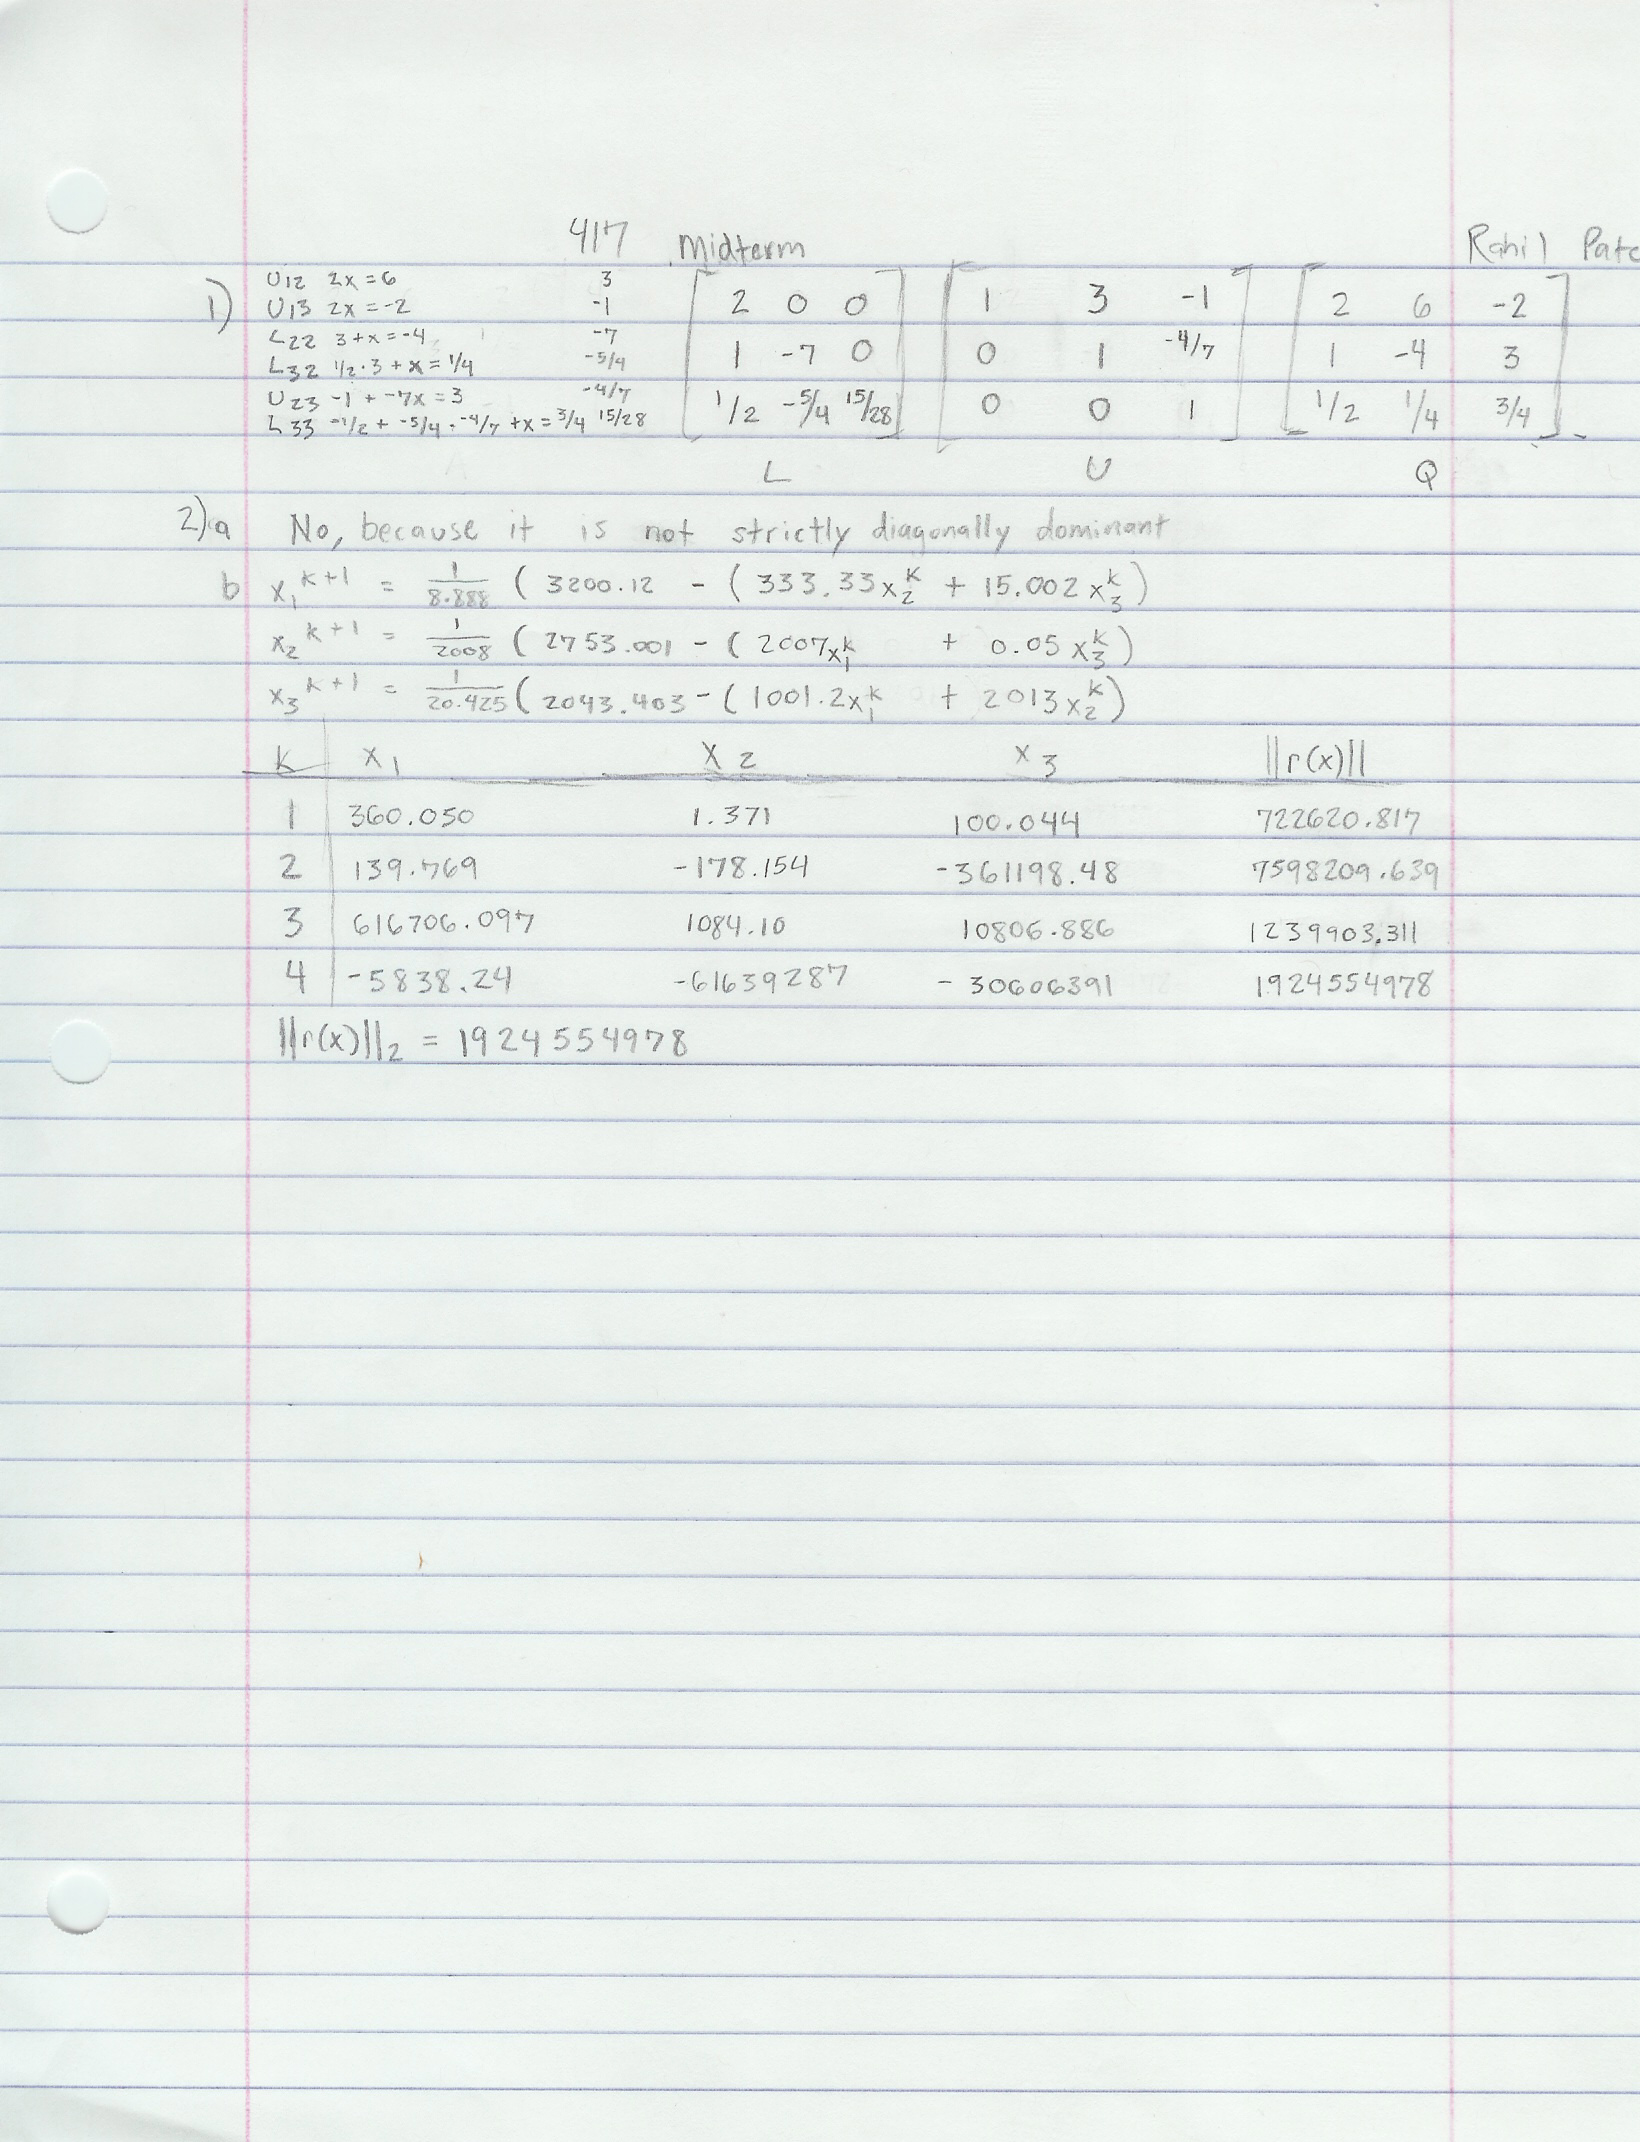 417 Midterm Rahil Pate
1) U12 2x = 6 3
U13 2x = -2 -1
L22 3 + x = -4 -7
L32 1/2 · 3 + x = 1/4 -5/4
U23 -1 + -7x = 3 -4/7
L33 -1/2 + -5/4 · -4/7 + x = 3/4 15/28
2 0 0 1 3 -1 2 6 -2
1 -7 0 0 1 -4/7 1 -4 3
1/2 -5/4 15/28 0 0 1 1/2 1/4 3/4
L U Q
2) a No, because it is not strictly diagonally dominant
b x₁^k+1 = 1/8.888 ( 3200.12 - ( 333.33x₂^k + 15.002 x₃^k )
x₂^k+1 = 1/2008 ( 2753.001 - ( 2007x₁^k + 0.05 x₃^k )
x₃^k+1 = 1/20.425 ( 2043.403 - ( 1001.2x₁^k + 2013x₂^k )
K x₁ x₂ x₃ ||r(x)||
1 360.050 1.371 100.044 722620.817
2 139.769 -178.154 -361198.48 7598209.639
3 616706.097 1084.10 10806.886 1239903.311
4 -5838.24 -61639287 -30606391 1924554978
||r(x)||₂ = 1924554978